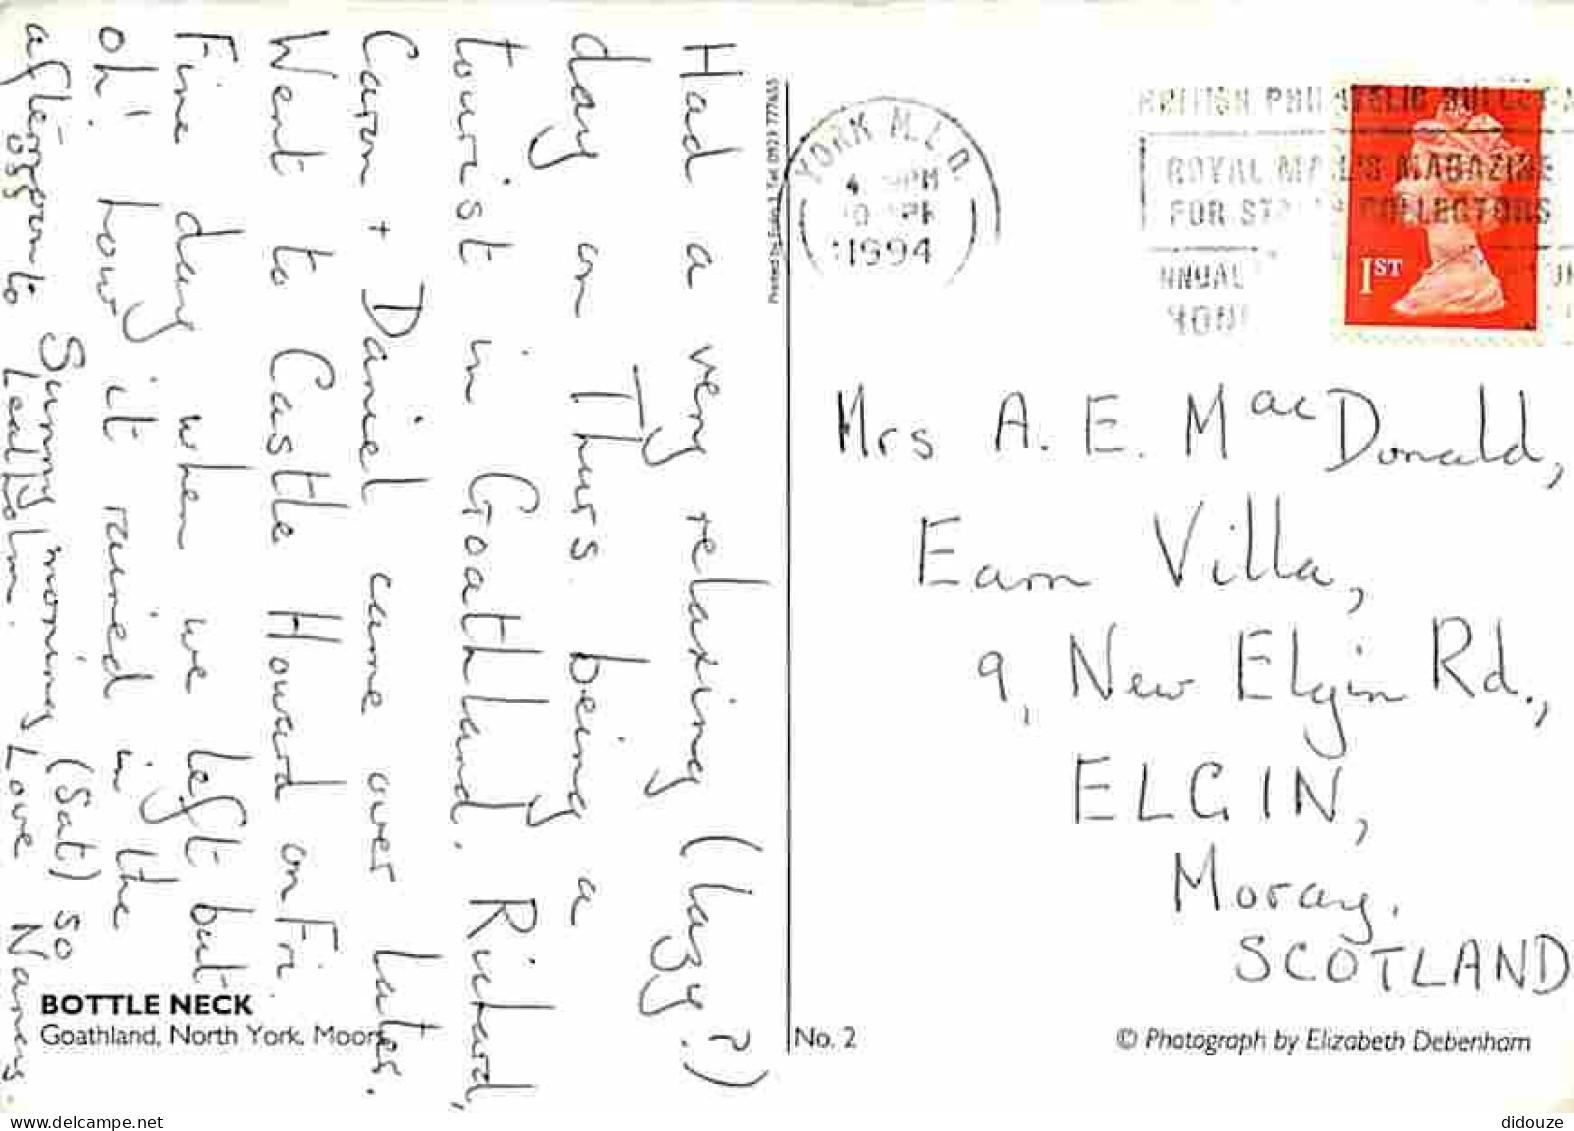 Had a very relaxing (lazy?)
day on Thurs. being a
tourist in Goathland. Richard,
Caron + Daniel came over later.
Went to Castle Howard on Fri.
Fine day when we left but
oh! how it rained in the
afternoon Sunny morning (Sat) so
off to Lealholm. Love Nancy.
BOTTLE NECK
Goathland, North York. Moors
Printed by 1 Tel 0923 777655
No. 2
© Photograph by Elizabeth Debenham
YORK M.L.O.
1994
BRITISH PHILATELIC BULLETIN
ROYAL MAIL'S MAGAZINE
FOR STAMP COLLECTORS
1ST
Mrs A. E. MacDonald,
Earn Villa,
9, New Elgin Rd.,
ELGIN,
Moray.
SCOTLAND
delcampe.net
didouze